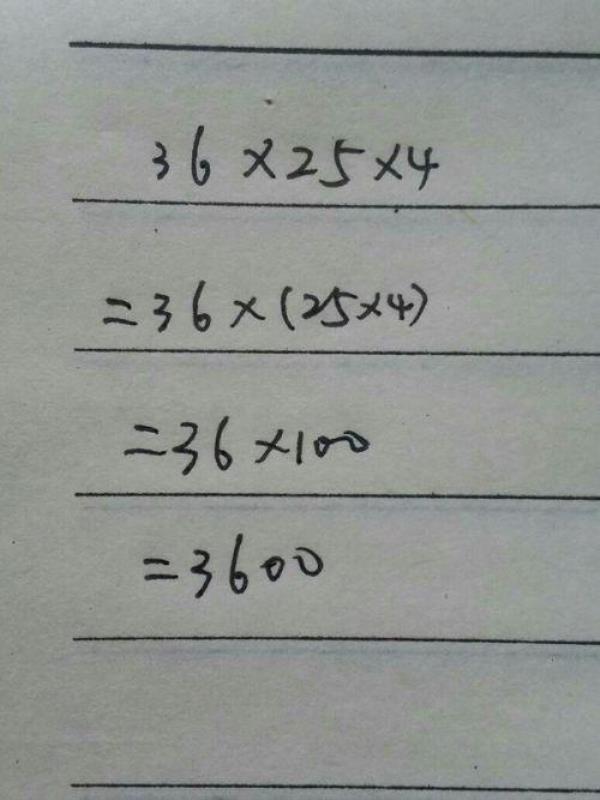 36×25×4
=36×(25×4)
=36×100
=3600